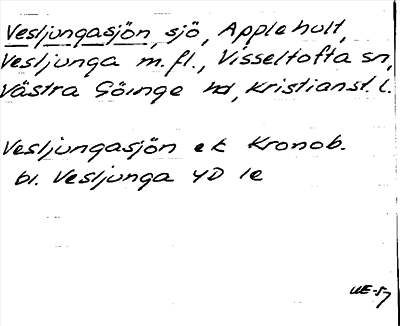 Vesljungasjön, sjö, Äpplehult,
Vesljunga m.fl., Visseltofta sn,
Västra Göinge hd, Kristianst. l.
Vesljungasjön ek Kronob.
bl. Vesljunga 4D 1e
UE-57